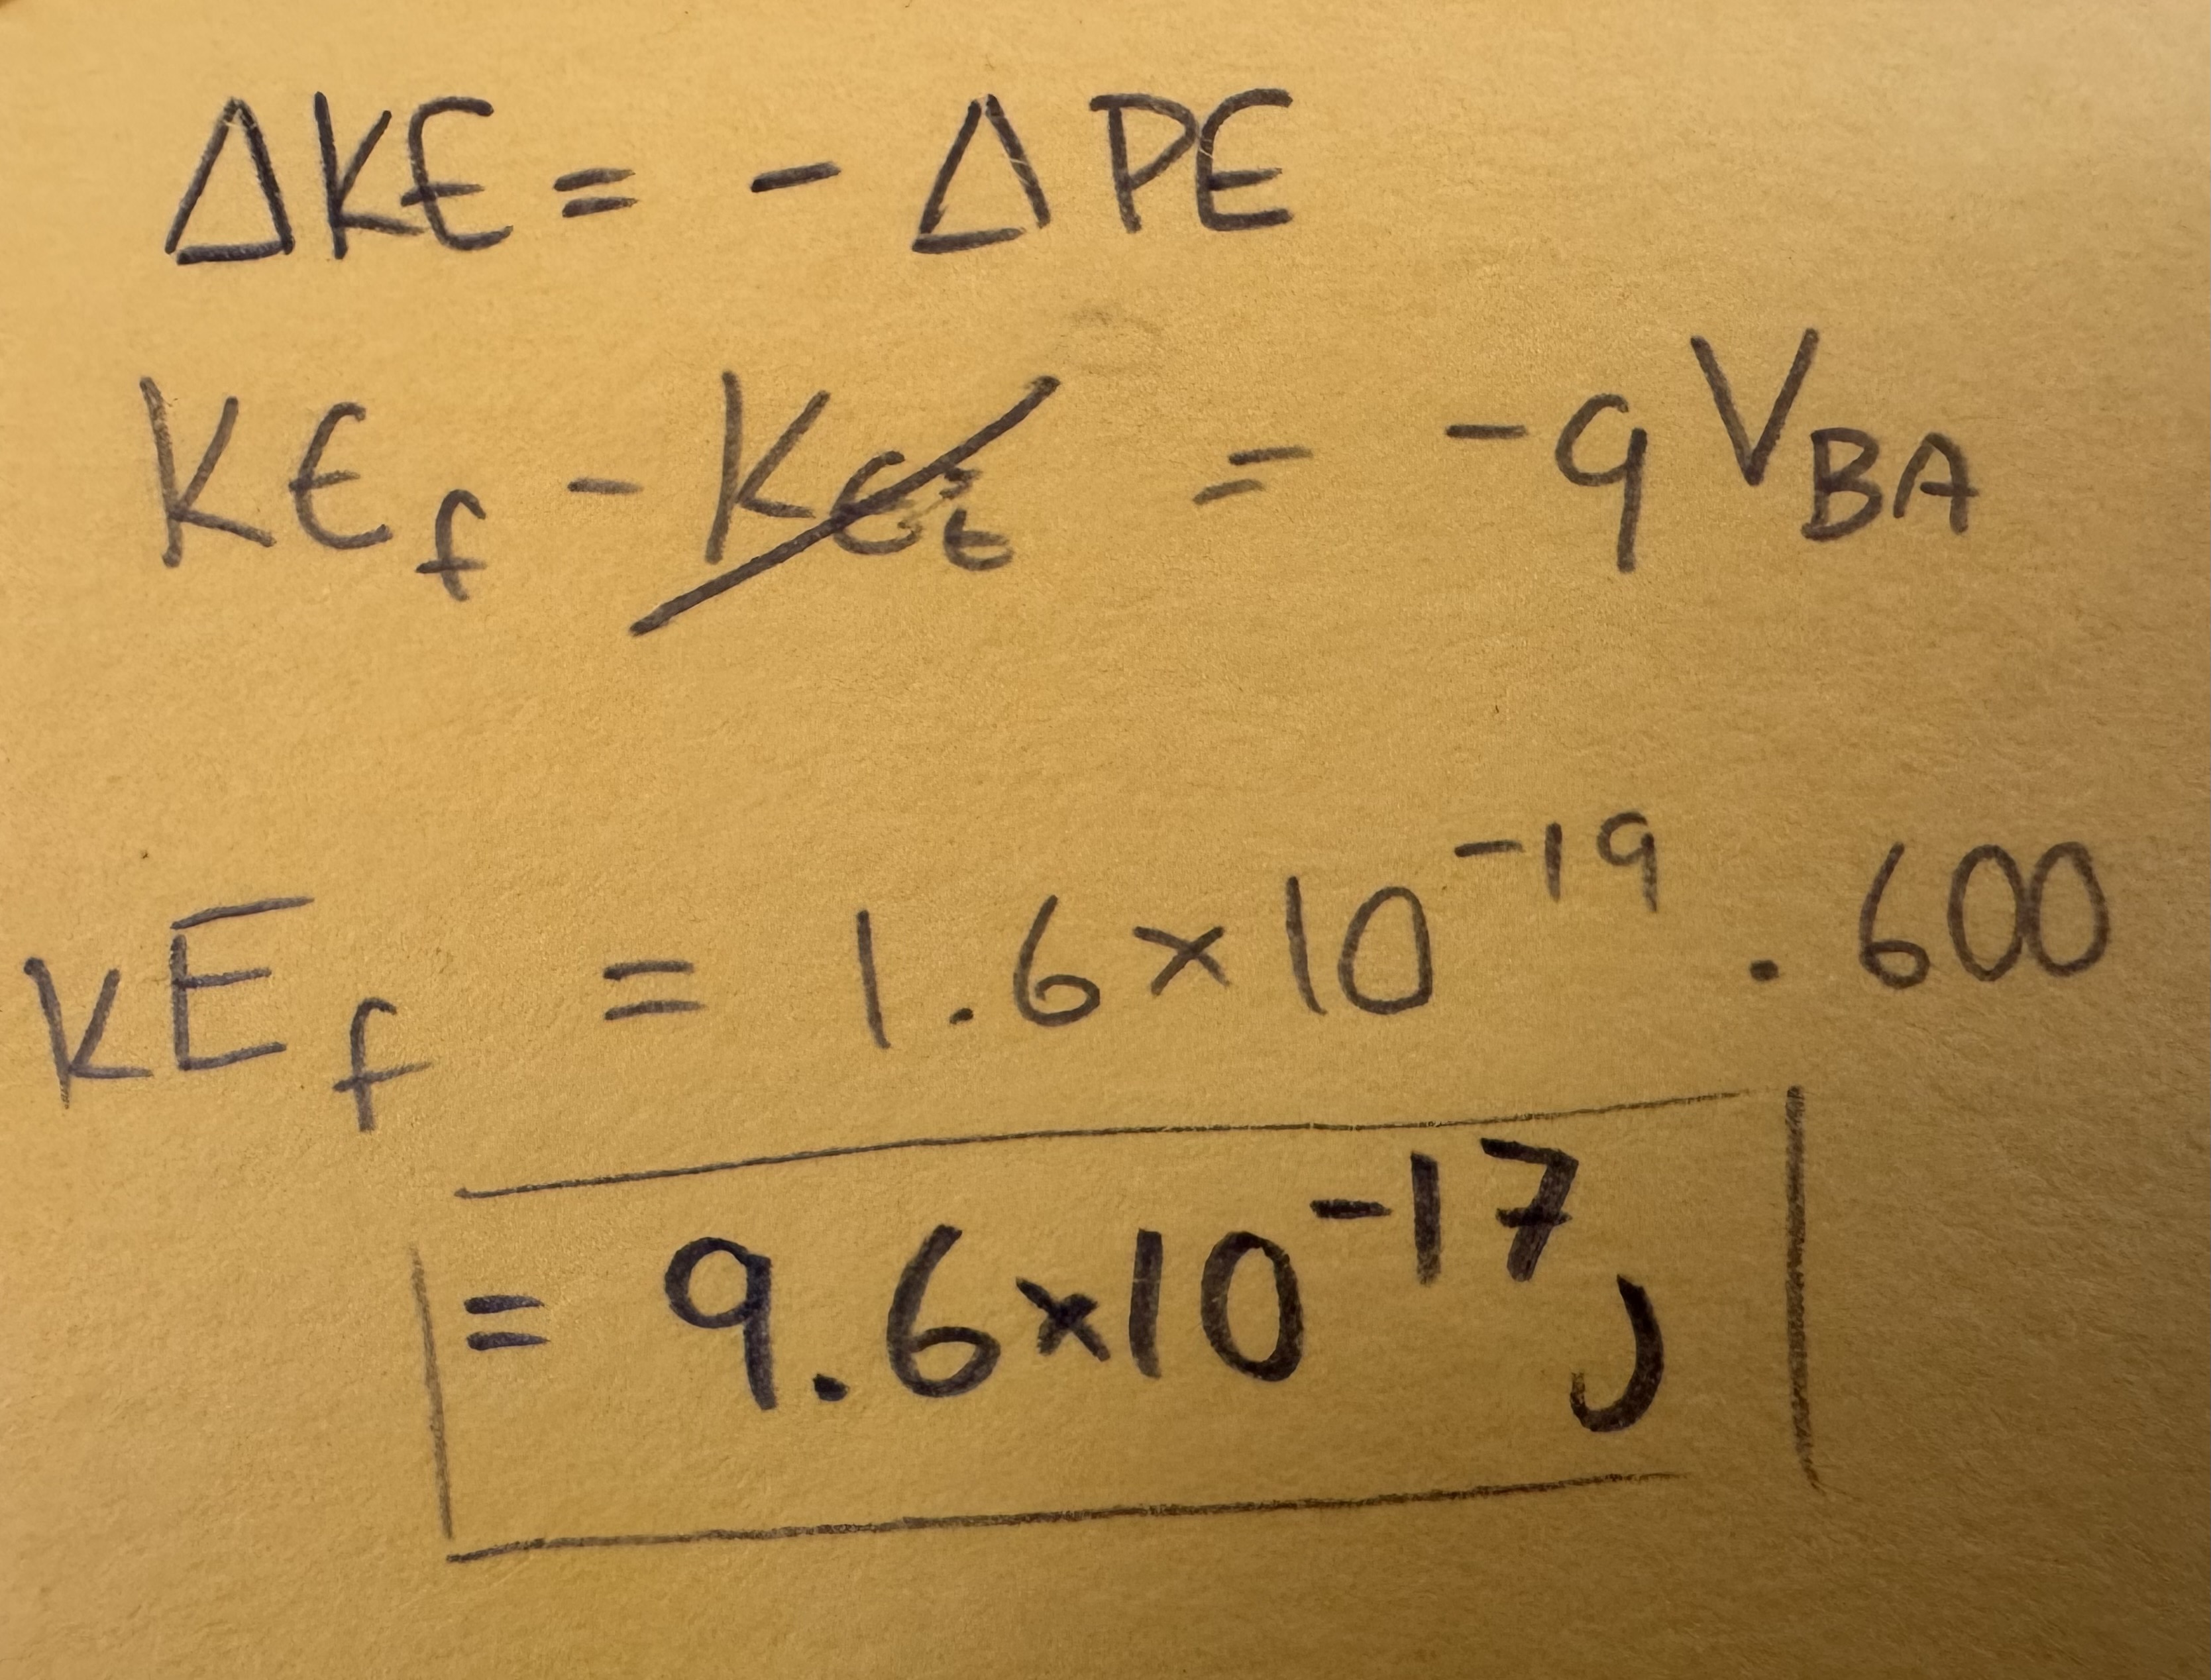 ΔKE = - ΔPE
KE_f - KE_i = -q V_BA
KE_f = 1.6×10^-19 . 600
= 9.6×10^-17 J